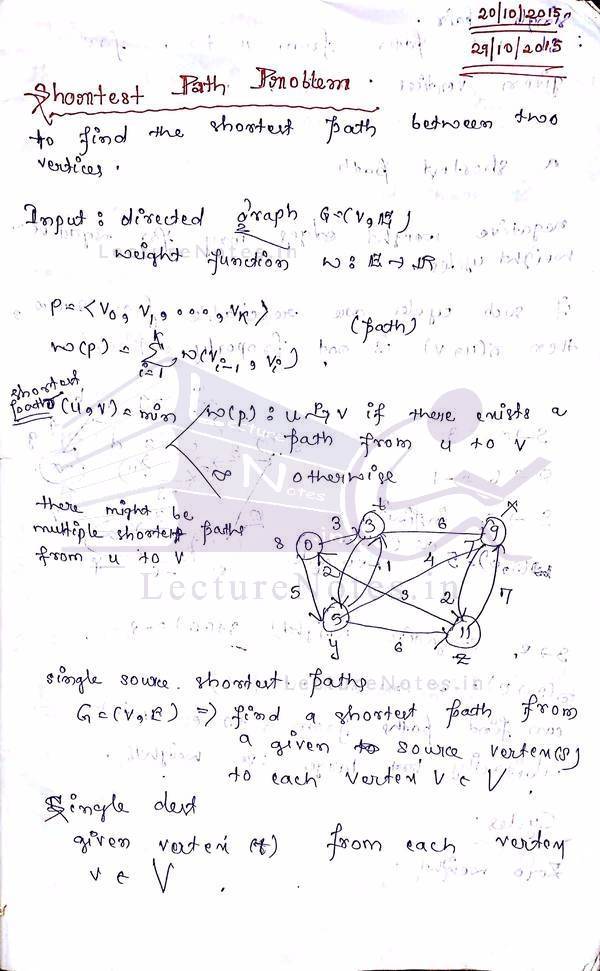 20/10/2015
29/10/2015
Shortest Path Problem.
to find the shortest path between two
vertices.
Input : directed graph G=(V,E)
weight function w: E → R.
P = <V0, V1, ...., VK> (path)
w(p) = K∑i=1 w(Vi-1, Vi).
shortest
path (u,v) = min w(p) : u P↝ v if there exists a
path from u to v
∞ otherwise
Lecture Notes
there might be
multiple shortest paths
from u to v
t x
3 6
S 0 3 9
2 1 4
5 3 2 7
5 11
y 6 z
LectureNotes.in
single source shortest paths
G=(V,E) => find a shortest path from
a given source vertex(s)
to each vertex v ∈ V
Single dest
given vertex (t) from each vertex
v ∈ V.